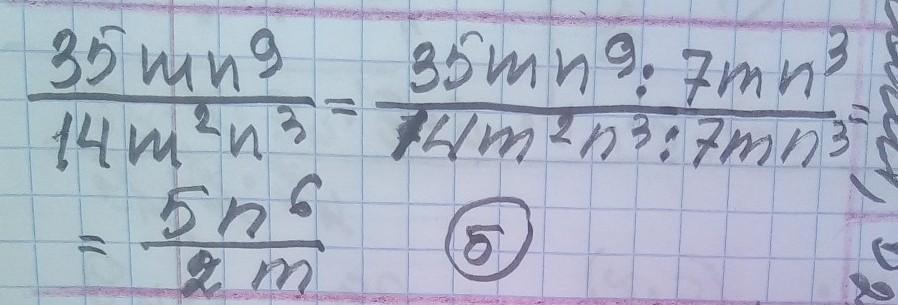 35mn⁹/14m²n³ = 35mn⁹:7mn³/14m²n³:7mn³ =
= 5n⁶/2m (5)